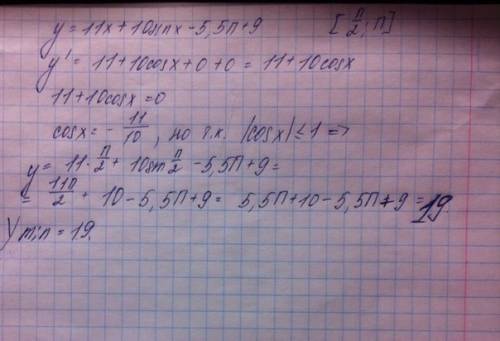 y = 11x + 10sinx - 5,5п + 9 [п/2; п]
y' = 11 + 10cosx + 0 + 0 = 11 + 10cosx
11 + 10cosx = 0
cosx = - 11/10, но т.к. |cosx| ≤ 1 =>
y = 11·п/2 + 10sin п/2 - 5,5п + 9 =
= 11п/2 + 10 - 5,5п + 9 = 5,5п + 10 - 5,5п + 9 = 19.
Ymin = 19.